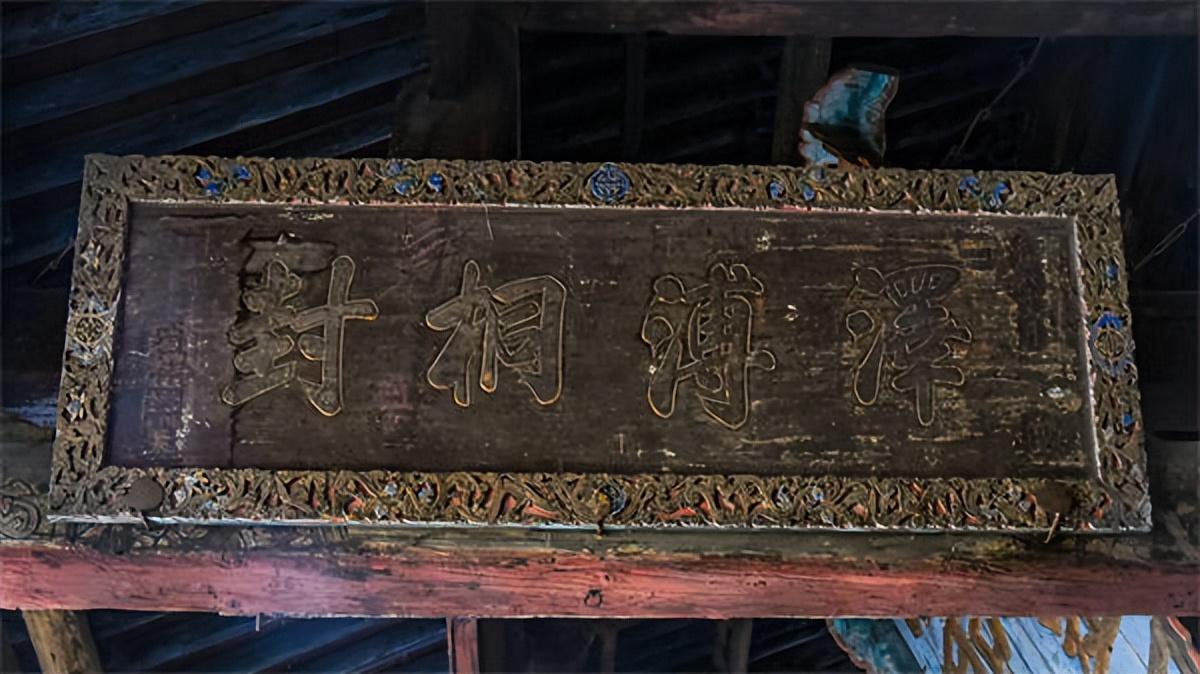 澤溥桐封